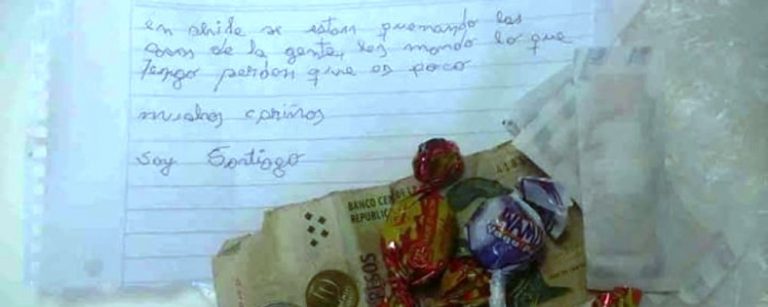 en chile se estan quemando las
casas de la gente, les mando lo que
tengo perdon que es poco
muchos cariños
soy Santiago
BANCO CEN
REPUBLIC
PESOS
10